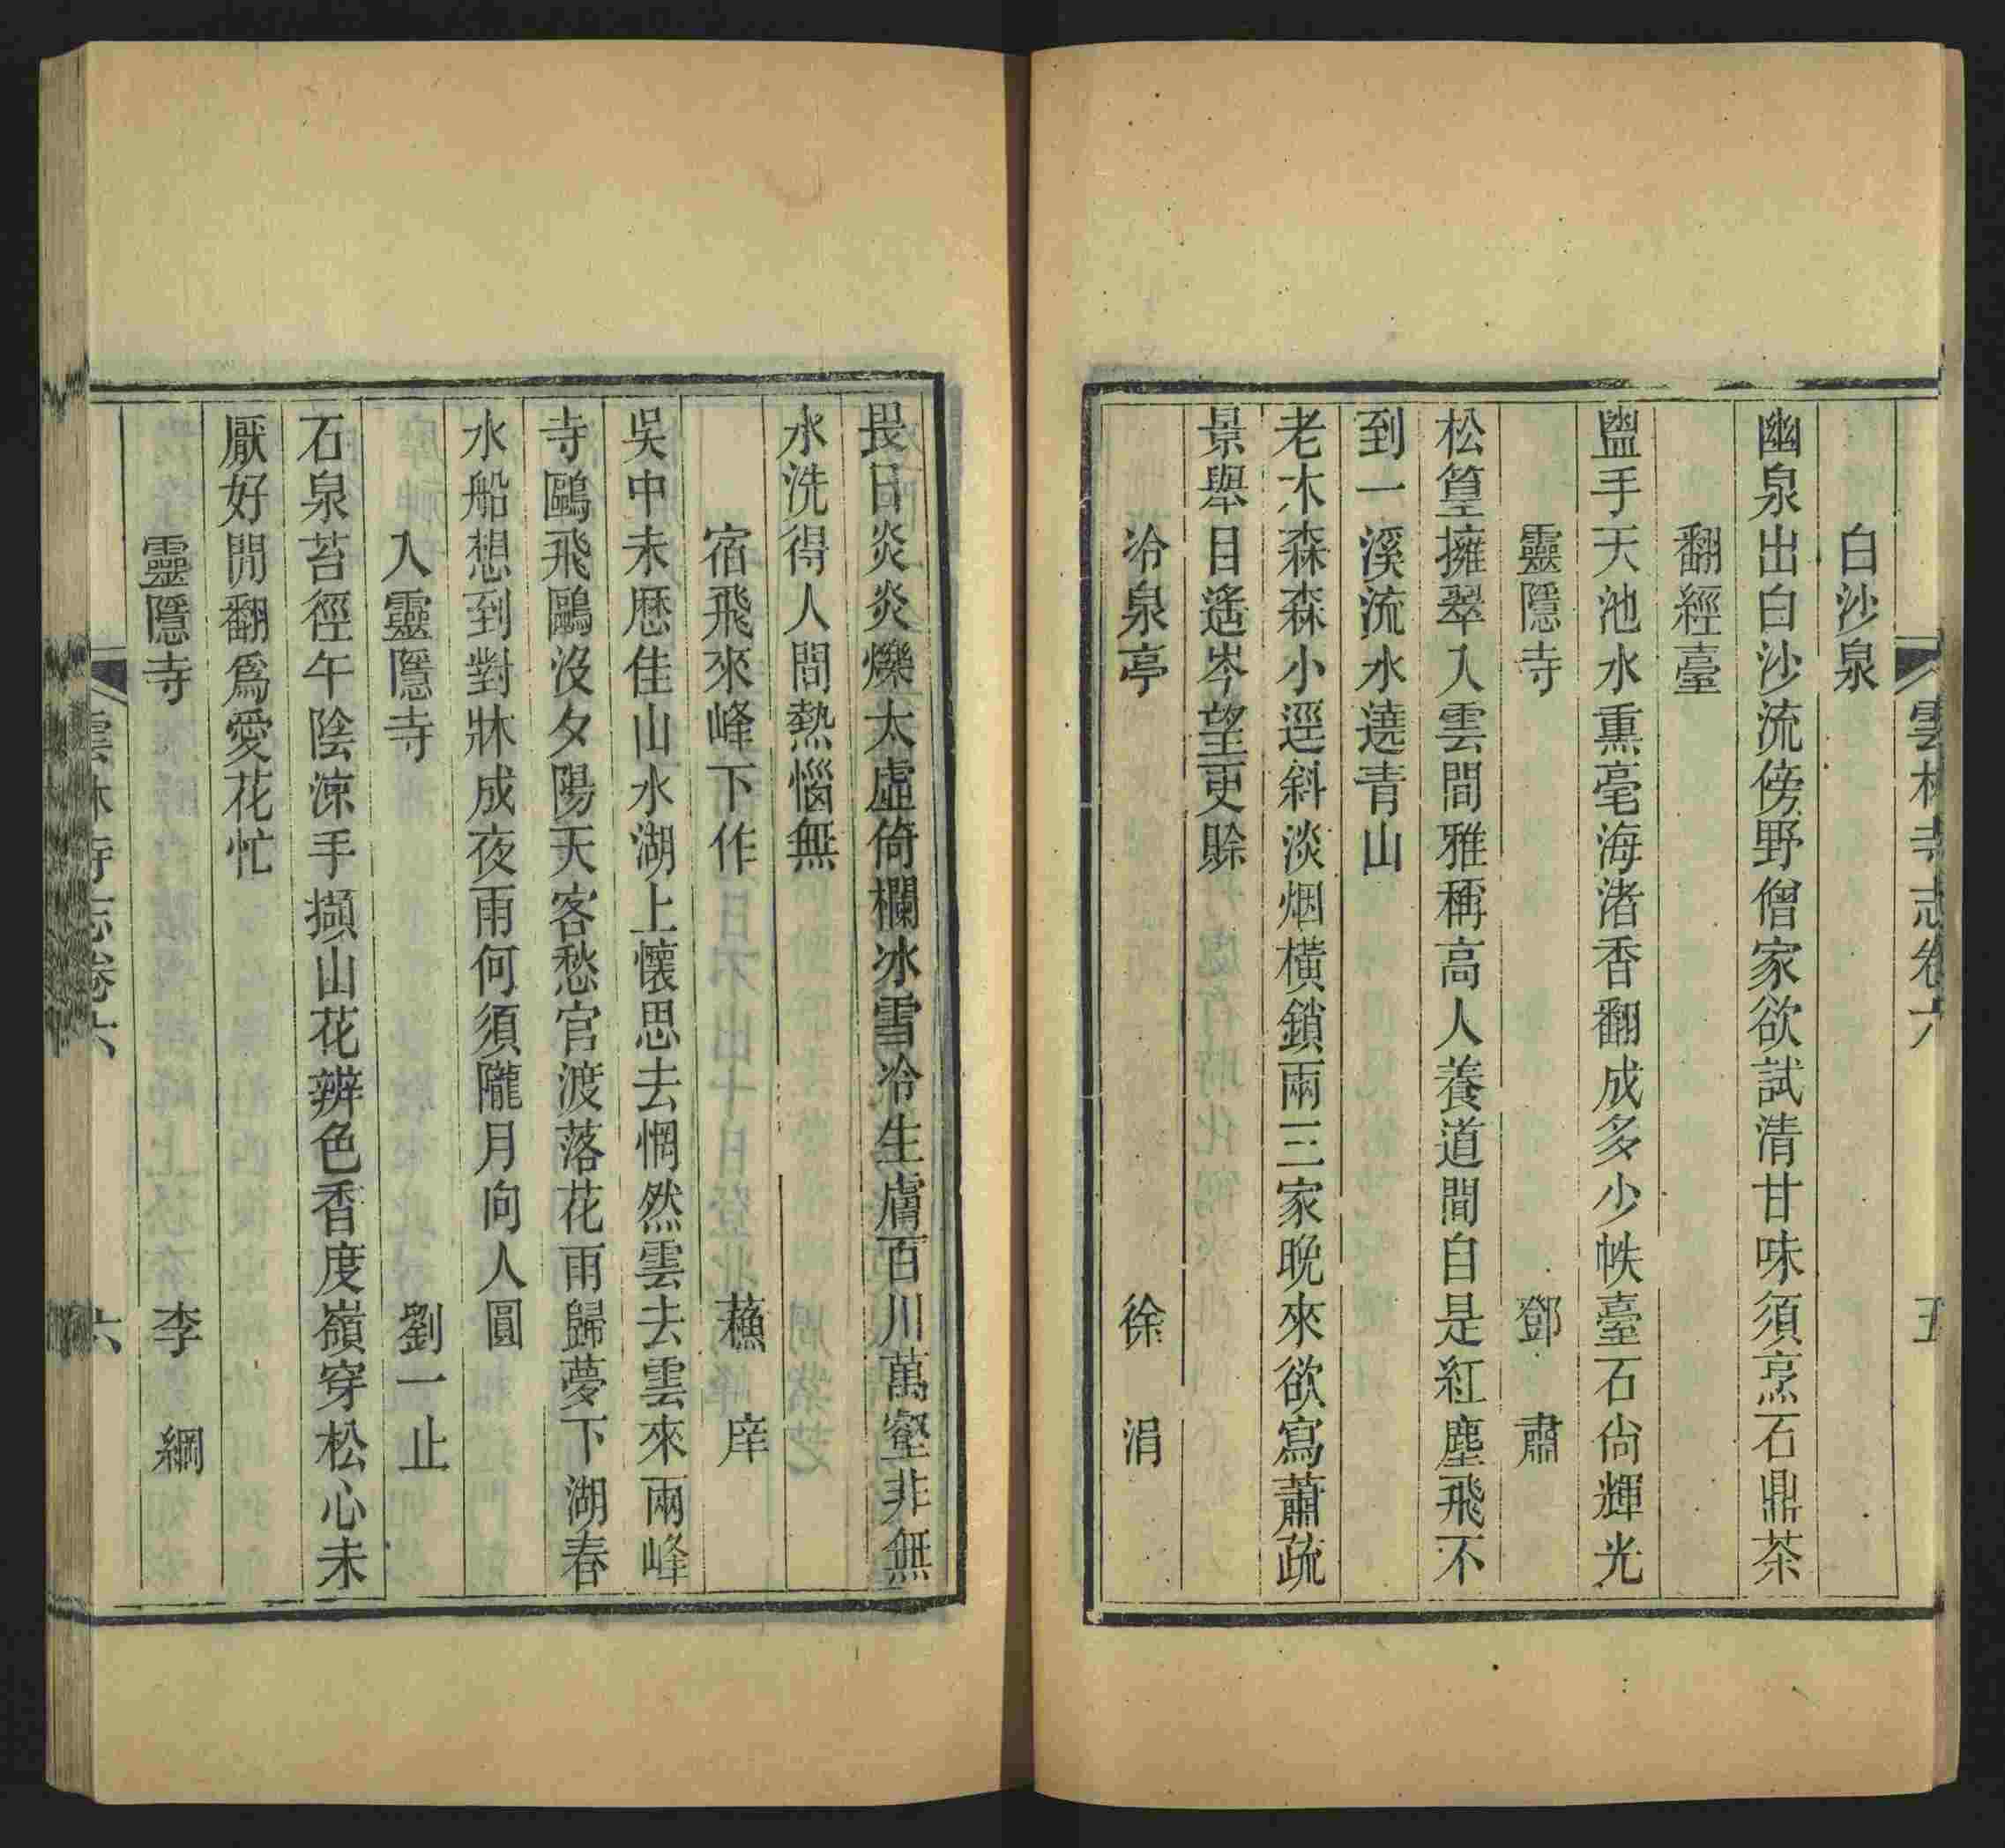 雲林寺志卷六 五
白沙泉
幽泉出白沙流傍野僧家欲試清甘味須烹石鼎茶
翻經臺
盥手天池水熏毫海渚香翻成多少帙臺石尙輝光
靈隱寺 鄧 肅
松篁擁翠入雲間雅稱高人養道間自是紅塵飛不
到一溪流水遶青山
老木森森小逕斜淡烟橫鎖兩三家晚來欲寫蕭疏
景舉目遙岑望更賒
冷泉亭 徐 涓
畏日炎炎爍太虛倚欄冰雪冷生膚百川萬壑非無
水洗得人間熱惱無
宿飛來峰下作 蘓 庠
吳中未歷佳山水湖上懷思去惘然雲去雲來兩峰
寺鷗飛鷗沒夕陽天客愁官渡落花雨歸夢下湖春
水船想到對牀成夜雨何須隴月向人圓
入靈隱寺 劉一止
石泉苔徑午陰涼手擷山花辨色香度嶺穿松心未
厭好閒翻爲愛花忙
靈隱寺 李 綱
雲林寺志卷六 六